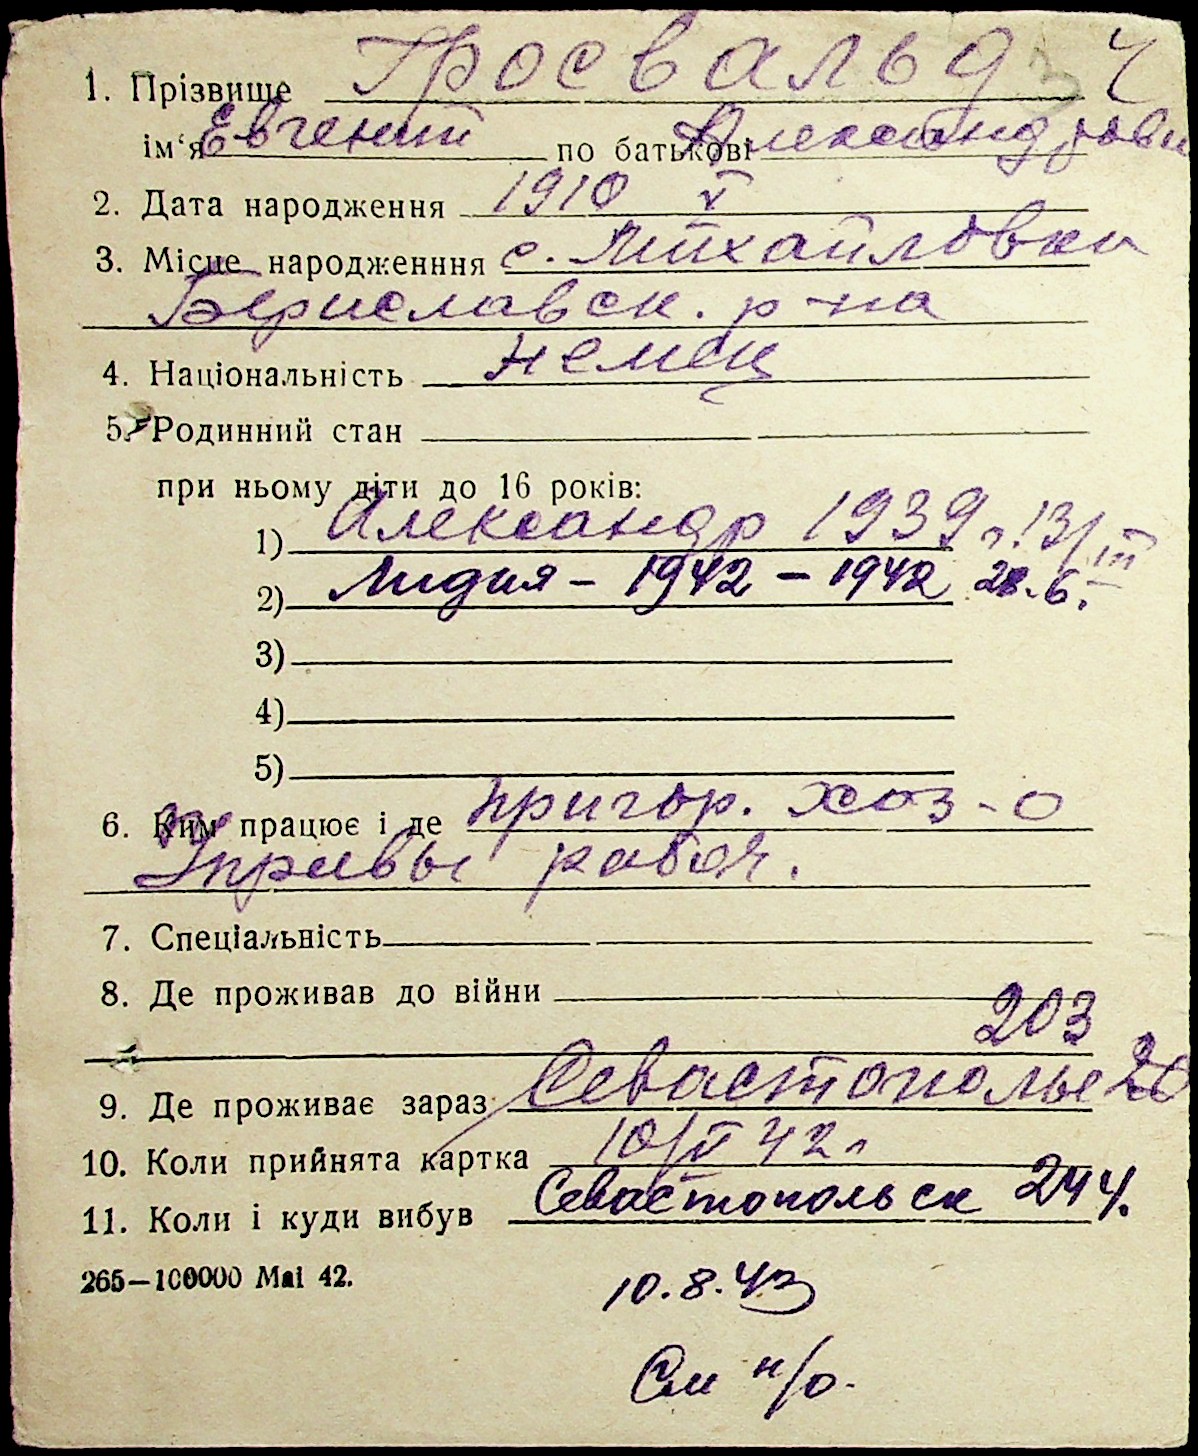 1. Прізвище Гросвальд Ч
ім‘я Евгений по батькові Александрови
2. Дата народження 1910 V
3. Місце народженння с. Михайловка
Бериславск. р-на
4. Національність немец
5. Родинний стан
при ньому діти до 16 років:
1) Александр 1939 г. 13/III
2) Лидия – 1942 – 1942 28.6.
3)
4)
5)
6. Ким працює і де пригор. хоз-о
Управы рабоч.
7. Спеціальність
8. Де проживав до війни
203
9. Де проживає зараз Севастополье 20
10. Коли прийнята картка 10/V 42 г
11. Коли і куди вибув Севастопольск 244.
265—100000 Mai 42.
10.8.43
См н/о.